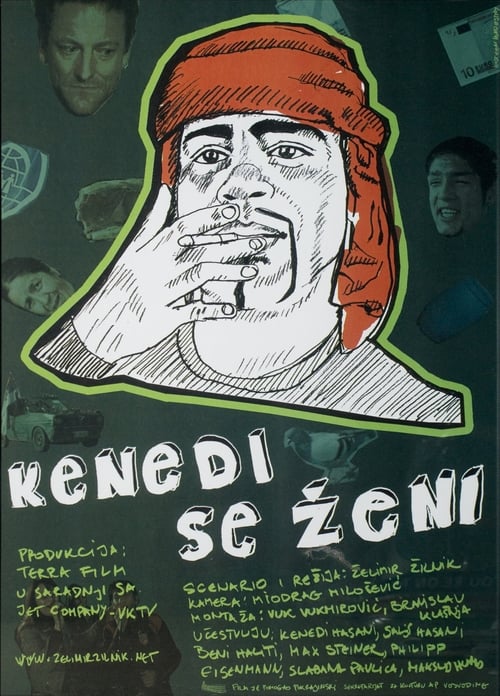 10 EURO
KENEDI
SE ŽENI
PRODUKCIJA:
TERRA FILM
U SARADNJI SA
JET COMPANY - VKTV
WWW.ZELIMIRZILNIK.NET
SCENARIO I REŽIJA: ŽELIMIR ŽILNIK
KAMERA: MIODRAG MILOŠEVIĆ
MONTAŽA: VUK VUKMIROVIĆ, BRANISLAV
KLAŠNJA
UČESTVUJU, KENEDI HASANI, SALIŠ HASANI
BENI HALITI, MAX STEINER, PHILIPP
EISENMANN, SLABANA PAVLICA,
FILM JE POMOGAO POKRAJINSKI SEKRETARIJAT ZA KULTURU AP VOJVODINE